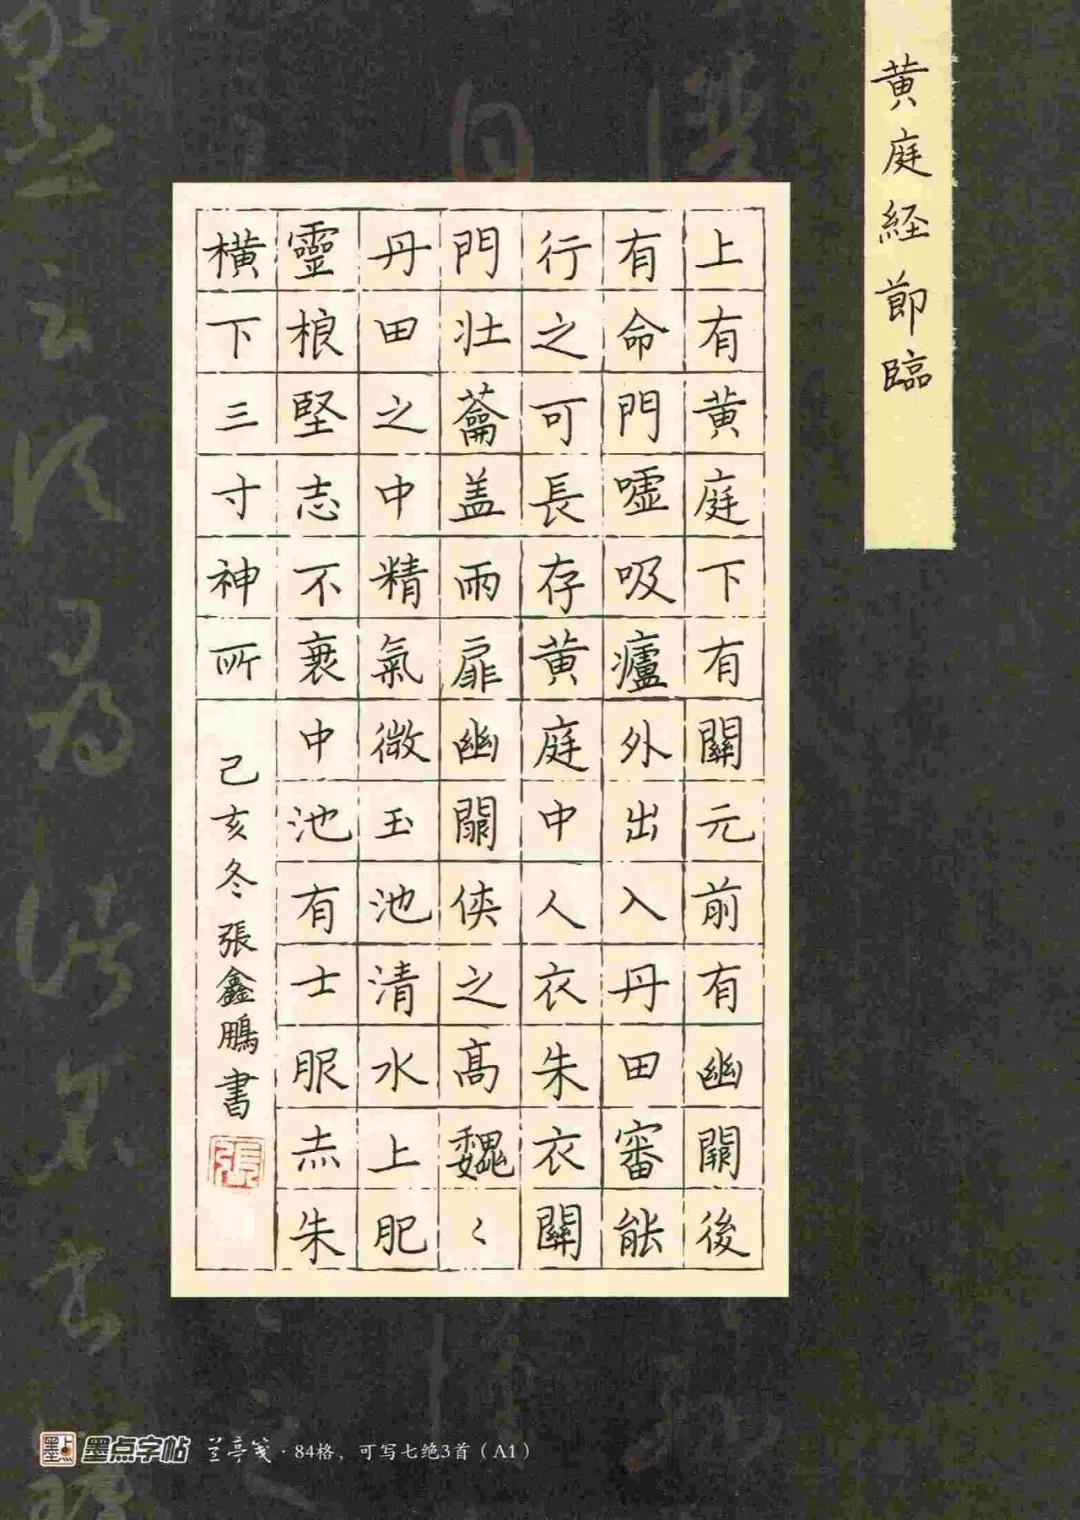 黄庭経節臨
上有黄庭下有關元前有幽闕後
有命門嘘吸廬外出入丹田審能
行之可長存黄庭中人衣朱衣關
門壮蘥盖兩扉幽闕侠之高巍〻
丹田之中精氣微玉池清水上肥
靈根堅志不衰中池有士服赤朱
横下三寸神所
己亥冬張鑫鵬書
張
墨点字帖 兰亭笺·84格，可写七绝3首（A1）